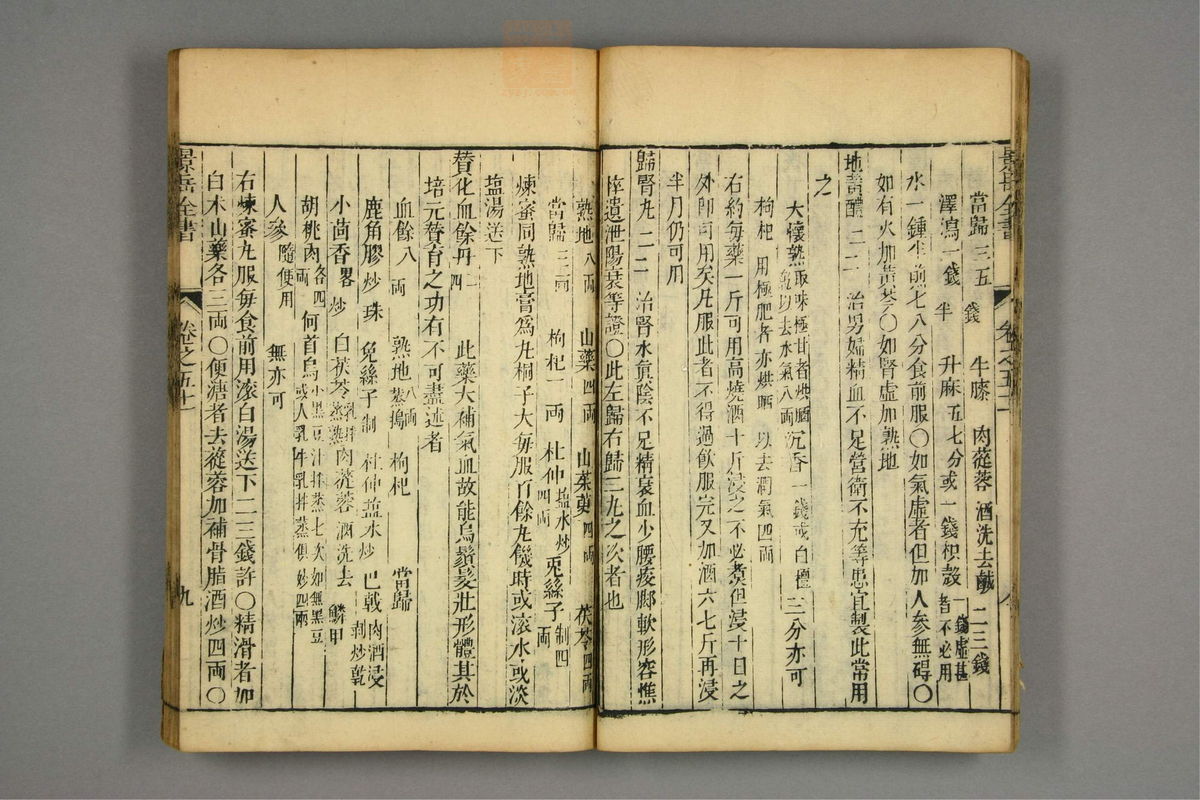 景岳全書 卷之五十一
當歸三五錢 牛膝 肉蓯蓉酒洗去鹹二三錢
澤瀉一錢半 升麻五七分或一錢 枳殼一錢虛甚者不必用
水一鍾半煎七八分食前服〇如氣虛者但加人參無碍〇
如有火加黃芩〇如腎虛加熟地
地黃醴二二 治男婦精血不足營衛不充等患宜製此常用
之
大懷熟取味極甘者烘晒乾以去水氣八兩 沉香一錢或白檀三分亦可
枸杞用極肥者亦烘晒以去潤氣四兩
右約每藥一斤可用高燒酒十斤浸之不必煮但浸十日之
外即可用矣凡服此者不得過飲服完又加酒六七斤再浸
半月仍可用
歸腎丸二三 治腎水眞陰不足精衰血少腰痠脚軟形容憔
悴遺泄陽衰等證〇此左歸右歸二丸之次者也
熟地八兩 山藥四兩 山茱萸四兩 茯苓四兩
當歸三兩 枸杞一兩 杜仲塩水炒四兩 兎絲子制四兩
煉蜜同熟地膏爲丸桐子大每服百餘丸饑時或滾水或淡
塩湯送下
贊化血餘丹二四 此藥大補氣血故能烏鬚髮壯形體其於
培元贊育之功有不可盡述者
血餘八兩 熟地八兩蒸搗 枸杞 當歸
鹿角膠炒珠 兔絲子制 杜仲塩水炒 巴戟肉酒浸剥炒乾
小茴香畧炒 白茯苓乳拌蒸熟 肉蓯蓉酒洗去鱗甲
胡桃肉各四兩 何首烏小黑豆汁拌蒸七次如無黑豆或人乳牛乳拌蒸俱妙四兩
人參隨便用無亦可
右煉蜜丸服每食前用滾白湯送下二三錢許〇精滑者加
白朮山藥各三兩〇便溏者去蓯蓉加補骨脂酒炒四兩〇
景岳全書 卷之五十一 九